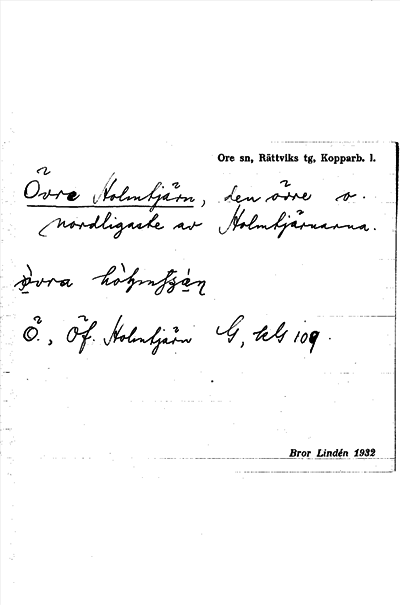 Ore sn, Rättviks tg, Kopparb. l.
Övre Holmtjärn, den övre o.
nordligaste av Holmtjärnarna.
övra
Ö., Öf. Holmtjärn G, kls 109.
Bror Lindén 1932